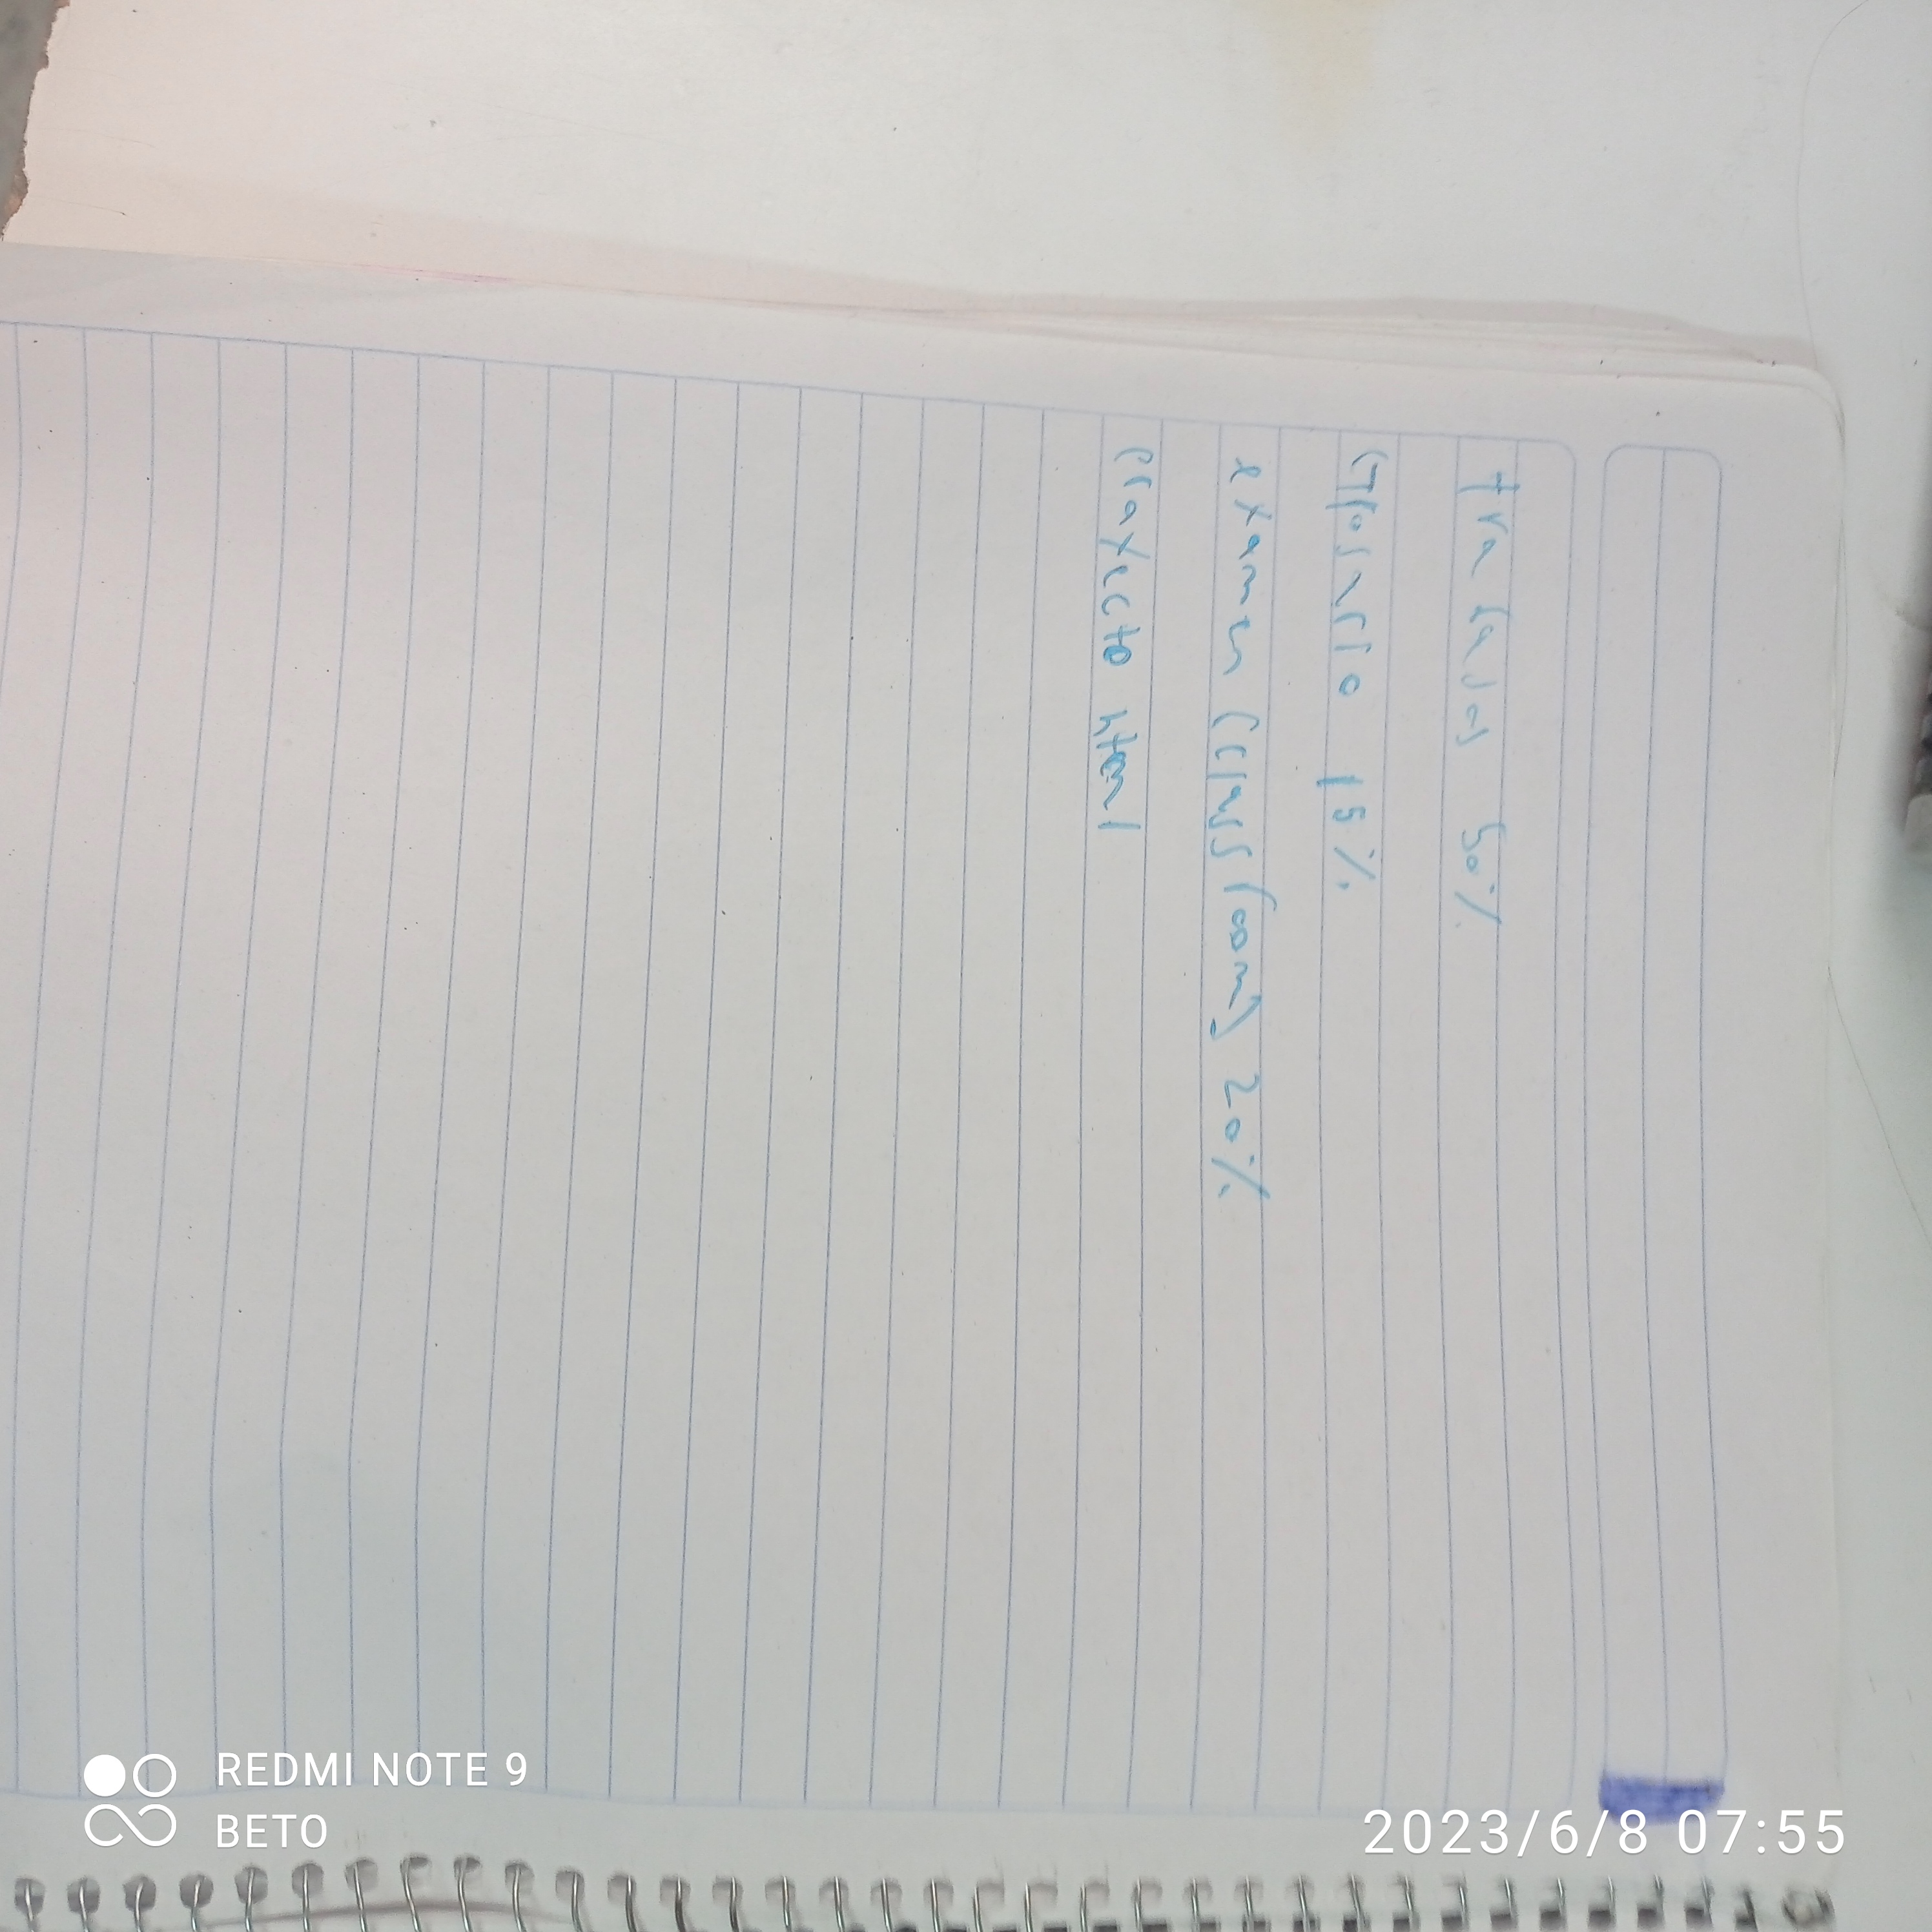 trabajos 50%
Glosario 15%
examen (classroom) 20%
proyecto html
REDMI NOTE 9
BETO
2023/6/8 07:55